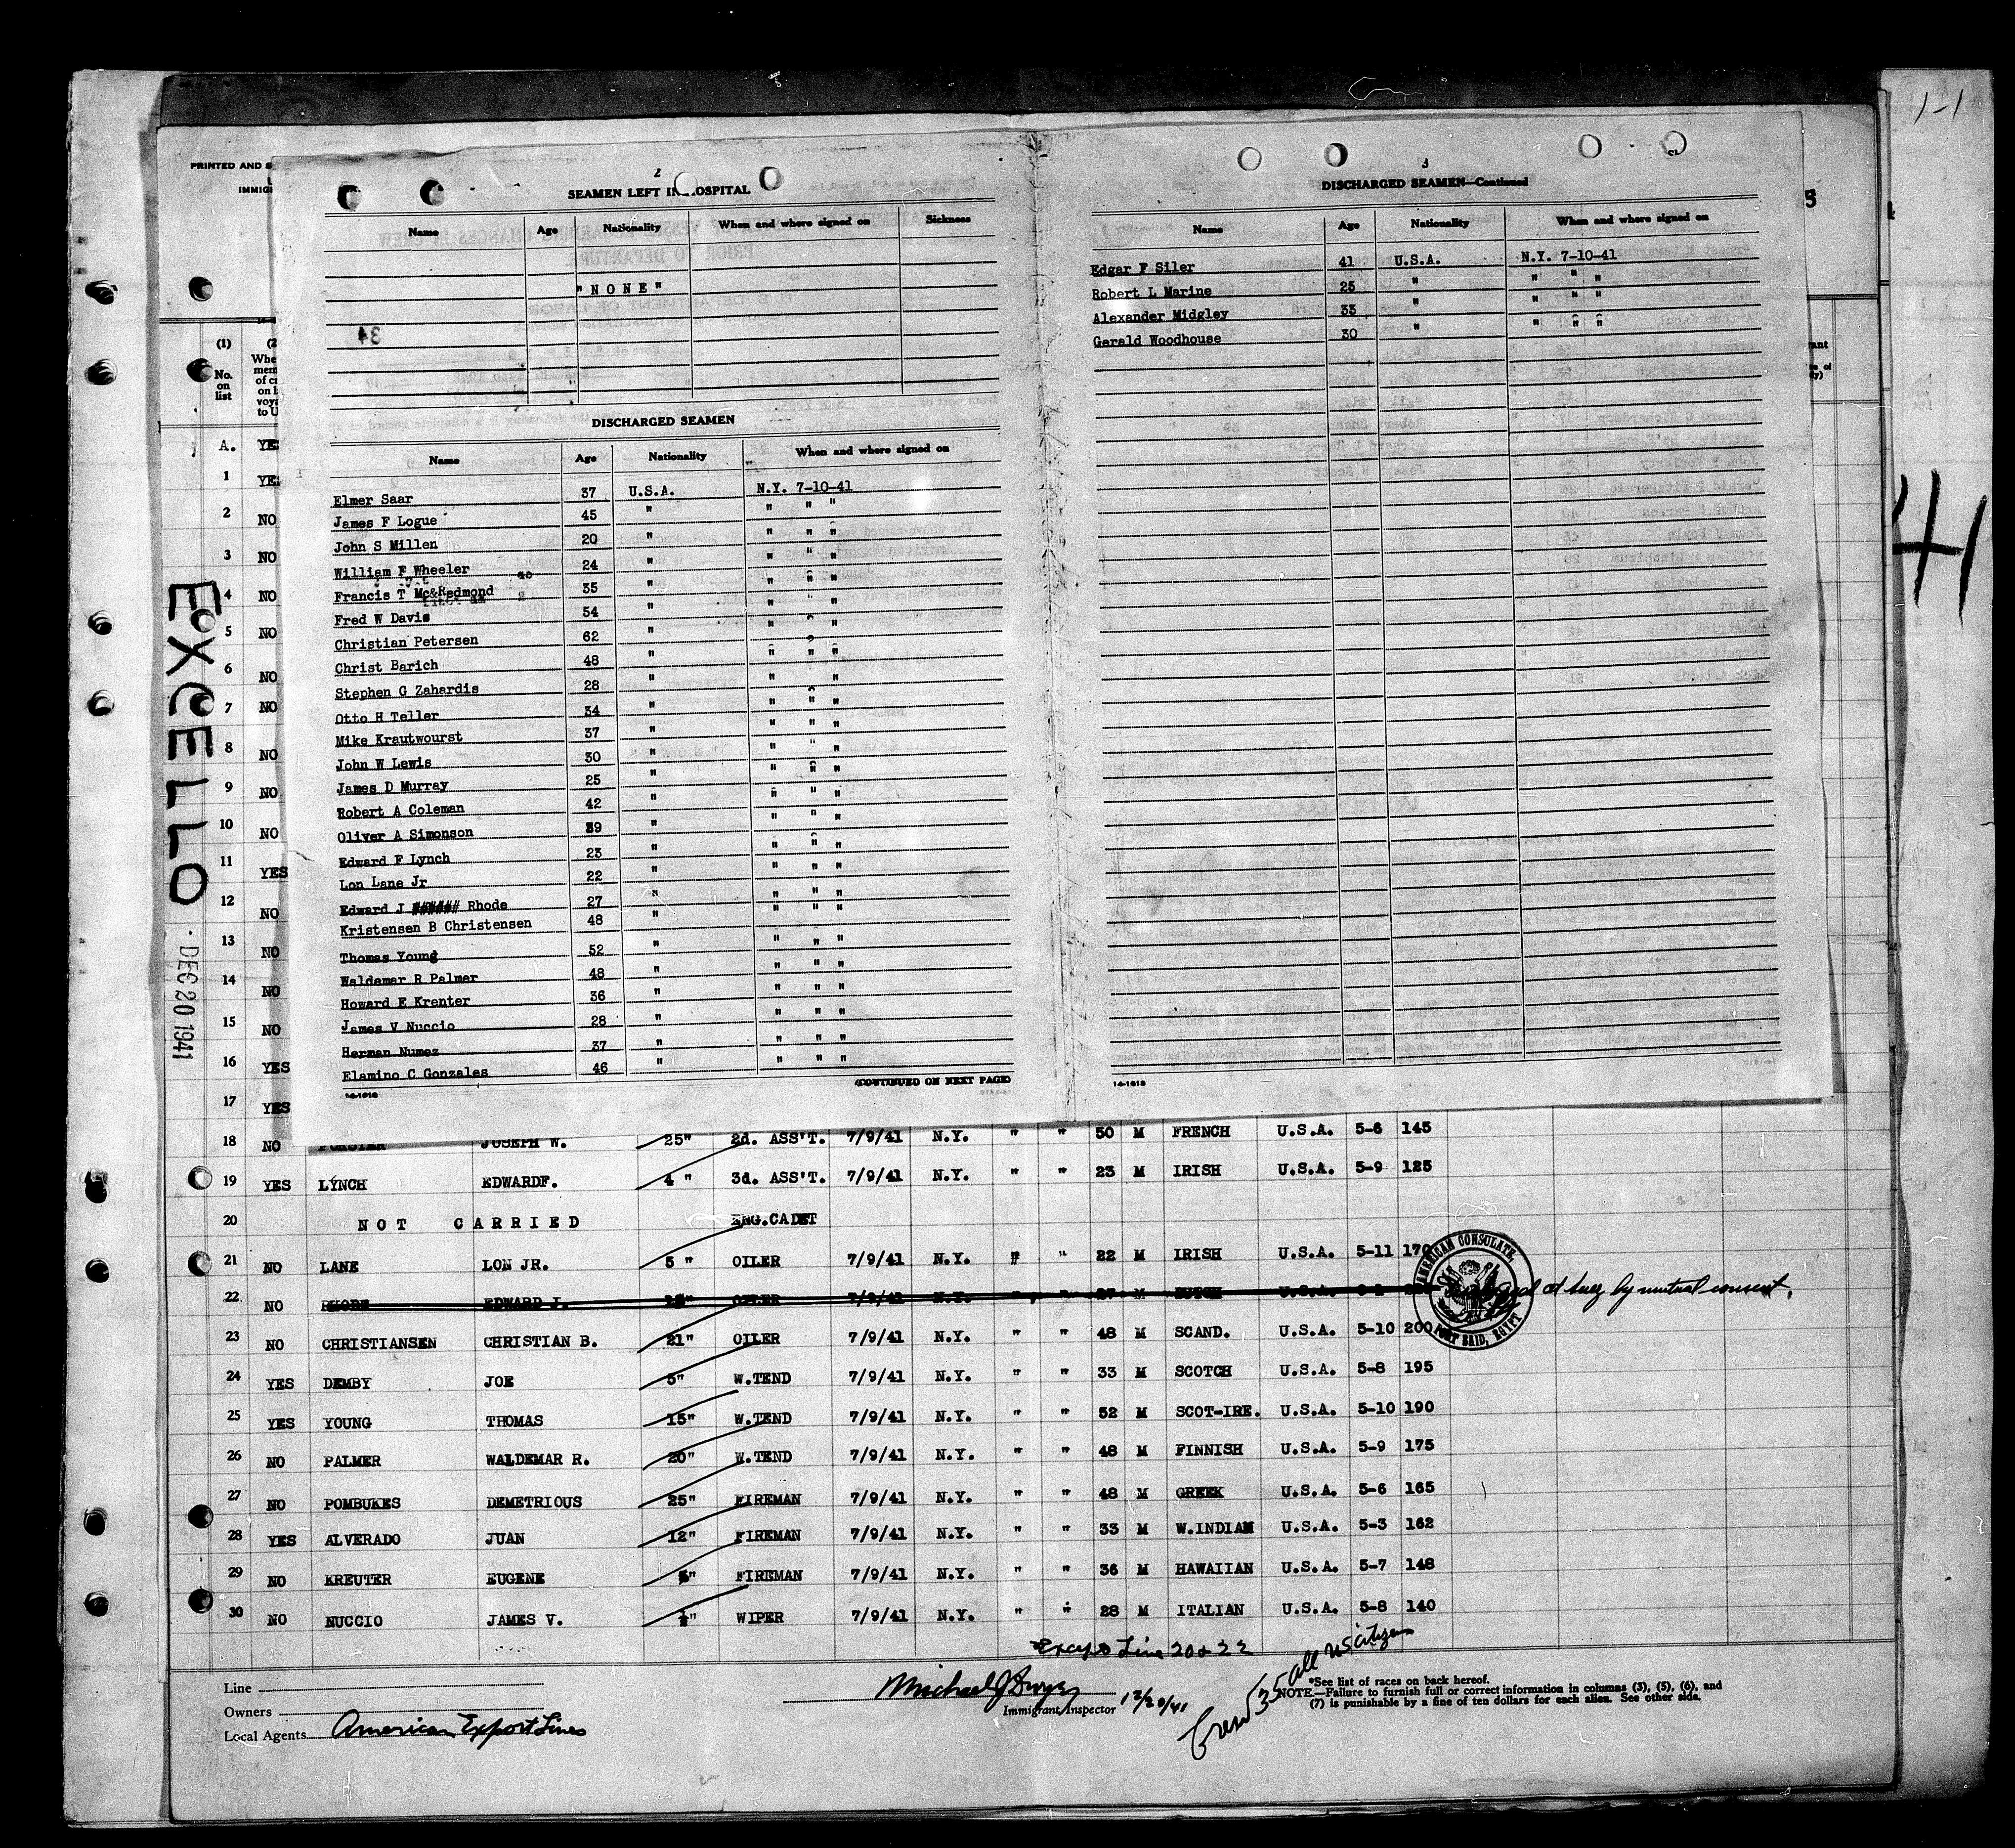 1-1
PRINTED AND S
IMMIGI
5
41
EXCELLO
DEC 20 1941
2
SEAMEN LEFT IN HOSPITAL
Name Age Nationality When and where signed on Sickness
"NONE"
DISCHARGED SEAMEN
Name Age Nationality When and where signed on
Elmer Saar 37 U.S.A. N.Y. 7-10-41
James F Logue 45 " " " "
John S Millen 20 " " " "
William F Wheeler 24 " " " "
Francis T Mc&Redmond 35 " " " "
Fred W Davis 54 " " " "
Christian Petersen 62 " " " "
Christ Barich 48 " " " "
Stephen G Zahardis 28 " " " "
Otto H Teller 34 " " " "
Mike Krautwourst 37 " " " "
John W Lewis 30 " " " "
James D Murray 25 " " " "
Robert A Coleman 42 " " " "
Oliver A Simonson 39 " " " "
Edward F Lynch 23 " " " "
Lon Lane Jr 22 " " " "
Edward J ###### Rhode 27 " " " "
Kristensen B Christensen 48 " " " "
Thomas Young 52 " " " "
Waldemar R Palmer 48 " " " "
Howard E Krenter 36 " " " "
James V Nuccio 28 " " " "
Herman Numez 37 " " " "
Elamino C Gonzales 46 " " " "
(CONTINUED ON NEXT PAGE)
14-1618
3
DISCHARGED SEAMEN—Continued
Name Age Nationality When and where signed on
Edgar F Siler 41 U.S.A. N.Y. 7-10-41
Robert L Marine 25 " " " "
Alexander Midgley 33 " " " "
Gerald Woodhouse 30 " " " "
14-1618
(1)
No.
on
list
(2
Whe
mem
of c
on l
voy
to U
A. YE
1 YE
2 NO
3 NO
4 NO
5 NO
6 NO
7 NO
8 NO
9 NO
10 NO
11 YES
12 NO
13 NO
14 NO
15 NO
16 YES
17 YES
18 NO JOSEPH W. 25" 2d. ASS'T. 7/9/41 N.Y. " " 50 M FRENCH U.S.A. 5-6 145
19 YES LYNCH EDWARDF. 4 " 3d. ASS'T. 7/9/41 N.Y. " " 23 M IRISH U.S.A. 5-9 125
20 NOT CARRIED ENG.CADET
21 NO LANE LON JR. 5 " OILER 7/9/41 N.Y. " " 22 M IRISH U.S.A. 5-11 170
22 NO RHODE EDWARD J. OILER 7/9/41 N.Y. " " 27 M DUTCH U.S.A. at Suez by mutual consent.
AMERICAN CONSULATE
PORT SAID, EGYPT
23 NO CHRISTIANSEN CHRISTIAN B. 21" OILER 7/9/41 N.Y. " " 48 M SCAND. U.S.A. 5-10 200
24 YES DEMBY JOE 5" W.TEND 7/9/41 N.Y. " " 33 M SCOTCH U.S.A. 5-8 195
25 YES YOUNG THOMAS 15" W.TEND 7/9/41 N.Y. " " 52 M SCOT-IRE. U.S.A. 5-10 190
26 NO PALMER WALDEMAR R. 20" W.TEND 7/9/41 N.Y. " " 48 M FINNISH U.S.A. 5-9 175
27 NO POMBUKES DEMETRIOUS 25" FIREMAN 7/9/41 N.Y. " " 48 M GREEK U.S.A. 5-6 165
28 YES ALVERADO JUAN 12" FIREMAN 7/9/41 N.Y. " " 33 M W.INDIAN U.S.A. 5-3 162
29 NO KREUTER EUGENE FIREMAN 7/9/41 N.Y. " " 36 M HAWAIIAN U.S.A. 5-7 148
30 NO NUCCIO JAMES V. WIPER 7/9/41 N.Y. " " 28 M ITALIAN U.S.A. 5-8 140
Except Line 20 & 22
Crew 35 all US citizens
Line
Owners
Local Agents American Export Lines
Michael J Dwyer 12/20/41
Immigrant Inspector
*See list of races on back hereof.
NOTE.—Failure to furnish full or correct information in columns (3), (5), (6), and
(7) is punishable by a fine of ten dollars for each alien. See other side.